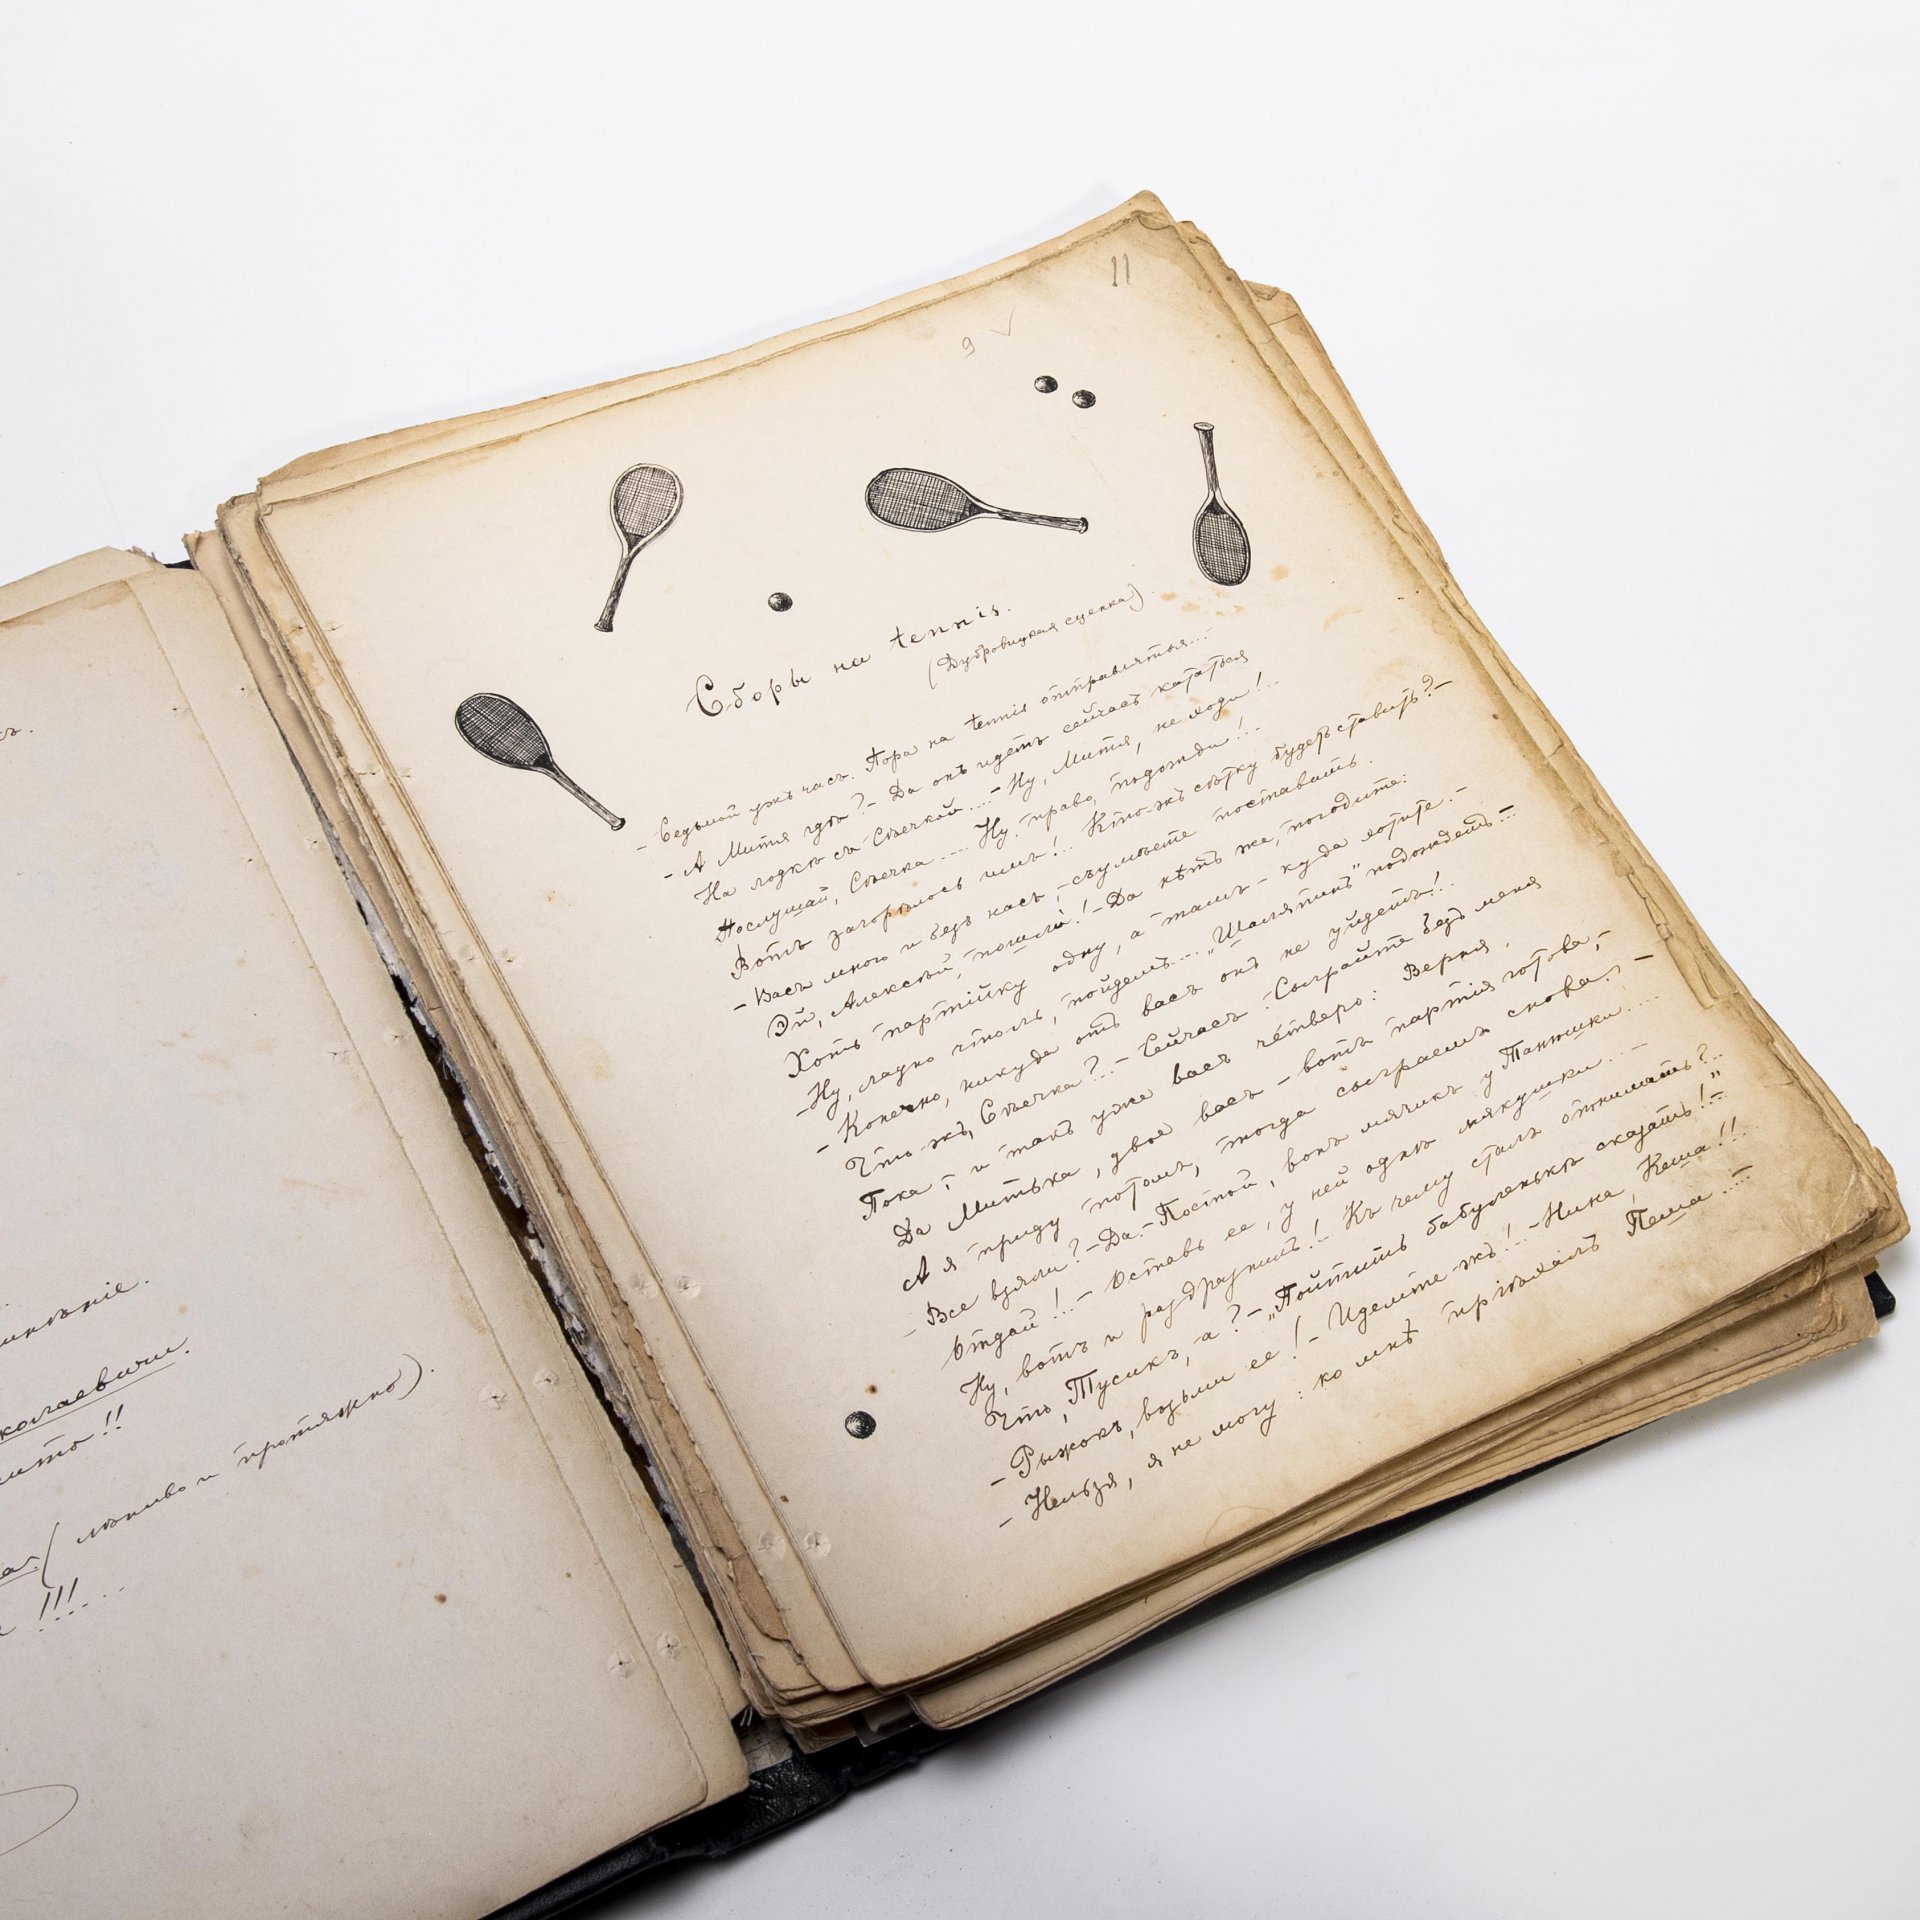 съ.
колаевичи.
мито!!
(лѣниво и протяжно).
!!!....
11
9
Сборы на tennis.
(Дубровицкая сценка).
- Седьмой ужъ часъ. Пора на tennis отправляться...-
- А Митя гдѣ? - Да онъ идетъ сейчасъ кататься
На лодкѣ съ Сѣечкой.... - Ну, Митя, не ходи!..
Послушай, Сѣечка.... Ну, право, подожди!..-
Вотъ загорѣлось имъ!.. Кто-жъ сѣтку будетъ ставить? -
- Васъ много и безъ насъ, - съумѣете поставить.
Эй, Алексѣй, пошли! - Да нѣтъ же, погодите:
Хоть партійку одну, а тамъ - куда хотите. -
- Ну, ладно чтоль, пойдемъ.... „Шаляпинъ" подождетъ...
- Конечно, никуда отъ васъ онъ не уйдетъ!..
Что-жъ, Сѣечка?.. - Сейчасъ: Сыграйте безъ меня
Пока; и такъ уже васъ четверо: Верня,
Да Митька, двое васъ - вотъ партія готова;
А я приду потомъ, тогда сыграемъ снова. -
- Все взяли? - Да. - Постой, вонъ мячикъ у Танюшки....
Отдай!.. - Оставь ее, у ней однѣ мякушки... -
Ну, вотъ и раздразнилъ! - Къ чему сталъ отнимать?..
Что, Тусикъ, а? - „Пойтить бабуленькѣ сказать!.."
- Рыжокъ, возьми ее! - Идемте-жъ!.. - Нина, Кеша!!..
- Нельзя, я не могу: ко мнѣ пріѣхалъ Пеша....